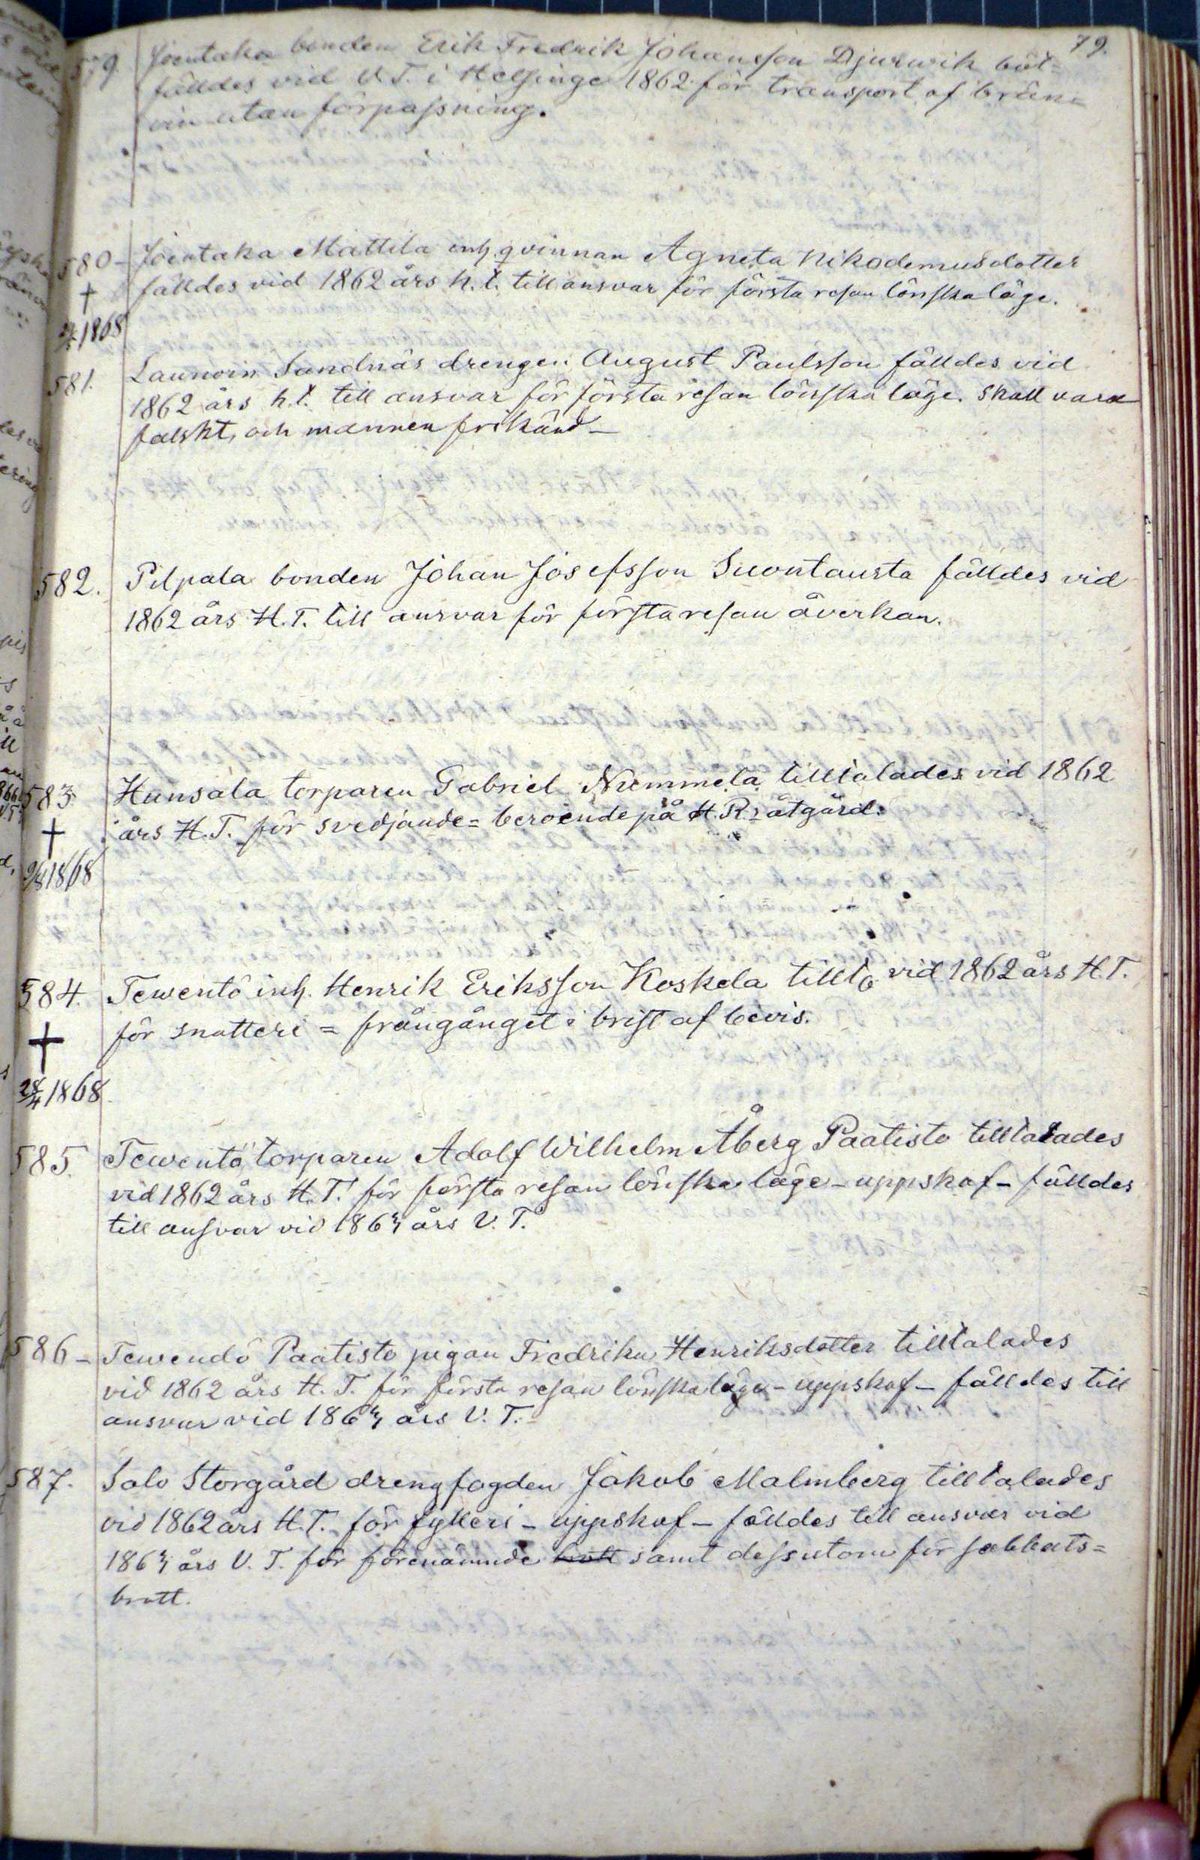 79.
579. Joentaka bonden Erik Fredrik Johansson Djurwik böt-
fälldes vid V.T. i Helsinge 1862 för transport af brän-
vin utan förpassning.
580 - Joentaka Mattila inh. qvinnan Agneta Nikodemusdotter
† fälldes vid 1862 års h.t. till ansvar för första resan lönskaläge.
1868
581. Launoin Sandnäs drengen August Paulsson fälldes vid
1862 års h.t. till ansvar för första resan lönska läge. Skall vara
falskt, och mannen frikänd -
582. Pilpala bonden Johan Josefsson Suontausta fälldes vid
1862 års H.T. till ansvar för första resan åverkan.
583 Hunsala torparen Gabriel Nummela tilltalades vid 1862
† års H.T. för svedjande = beroende på H.R. åtgärd.
1868
584. Tewentö inh. Henrik Eriksson Koskela tillt. vid 1862 års H.T.
† för snatteri = frångånget i brist af bevis.
28/4 1868
585. Tewentö torparen Adolf Wilhelm Åberg Paatisto tilltalades
vid 1862 års H.T. för första resan lönska läge - uppskof - fälldes
till ansvar vid 1863 års V.T.
586 - Tewendö Paatisto pigan Fredrika Henriksdotter tilltalades
vid 1862 års H.T. för första resan lönskaläge - uppskof - fälldes till
ansvar vid 1863 års V.T.
587. Salo Storgård drengfogden Jakob Malmberg tilltalades
vid 1862 års H.T. för fylleri - uppskof - fälldes till ansvar vid
1863 års V.T. för förenämnde brott samt dessutom för sabbats=
brott.